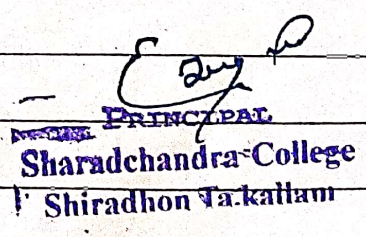 PRINCIPAL
Sharadchandra College
Shiradhon Ta.kallam